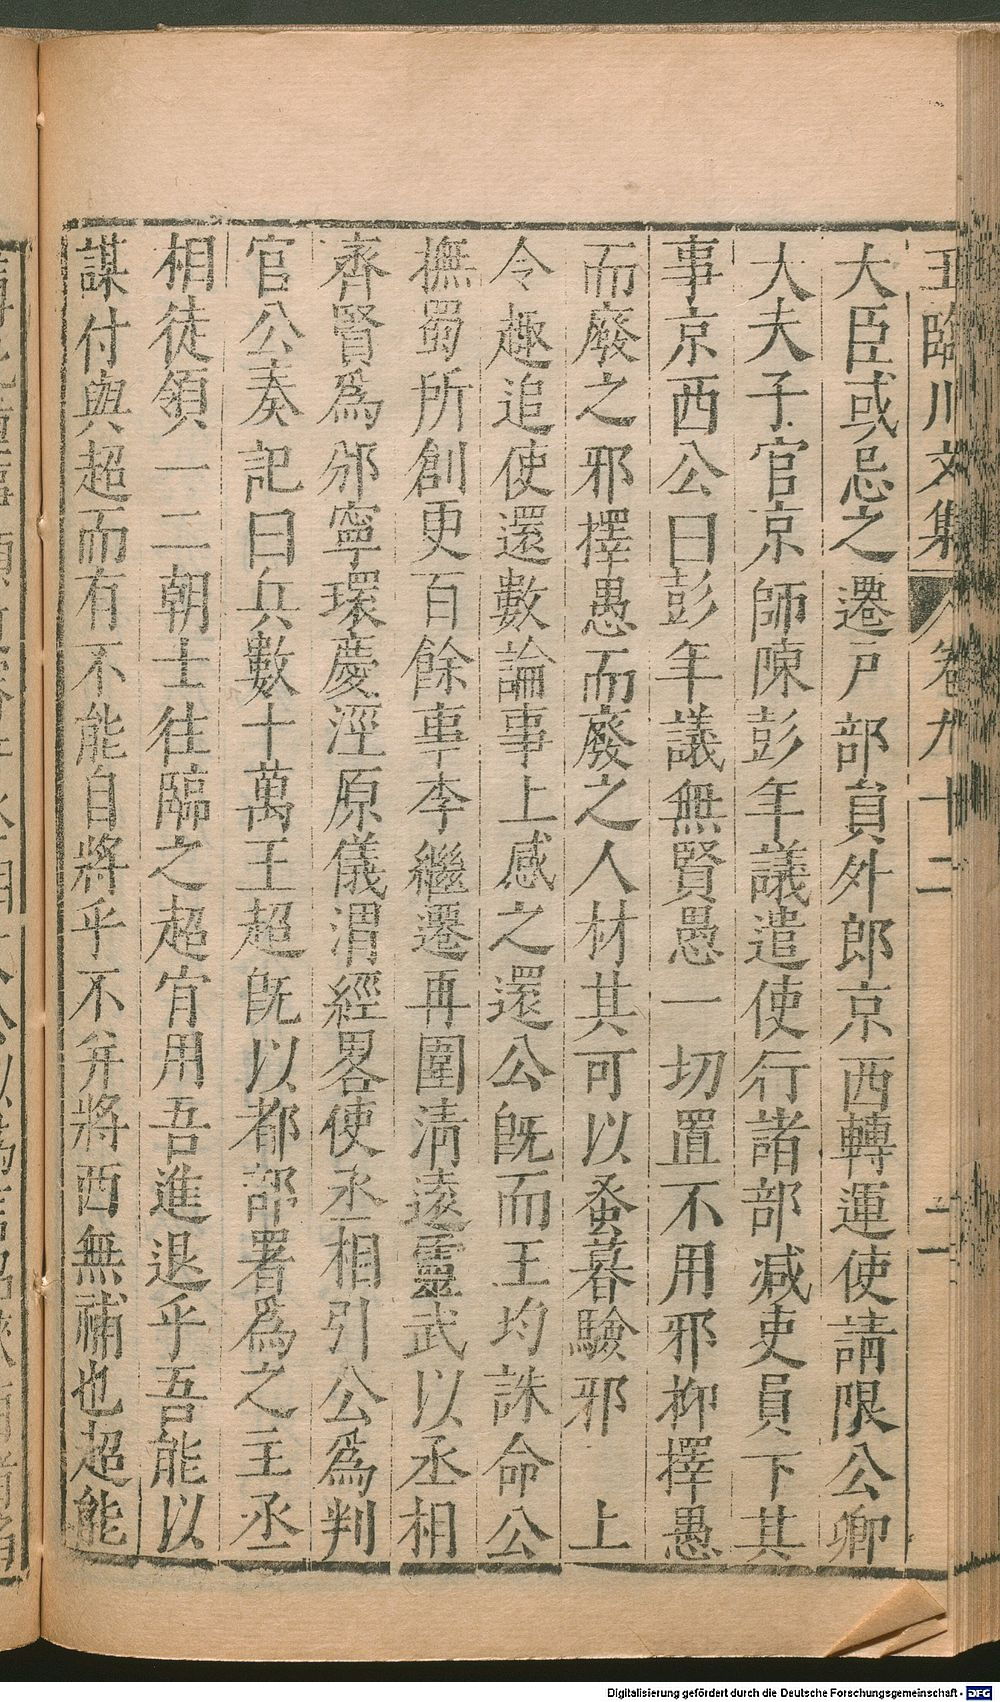 王臨川文集 卷九十二 二
大臣或忌之遷戸部員外郎京西轉運使請限公卿
大夫子官京師陳彭年議遣使行諸部减吏員下其
事京西公曰彭年議無賢愚一切置不用邪柳擇愚
而廢之邪擇愚而廢之人材其可以蚤暮驗邪 上
令趣追使還數論事上感之還公旣而王均誅命公
撫蜀所創更百餘事李繼遷再圍清遠靈武以丞相
齊賢爲邠寧環慶涇原儀渭經畧使丞相引公爲判
官公奏記曰兵數十萬王超旣以都部署爲之主丞
相徒領一二朝士往臨之超宵用吾進退乎吾能以
謀付與超而有不能自將乎不并將西無補也超能
Digitalisierung gefördert durch die Deutsche Forschungsgemeinschaft - DFG